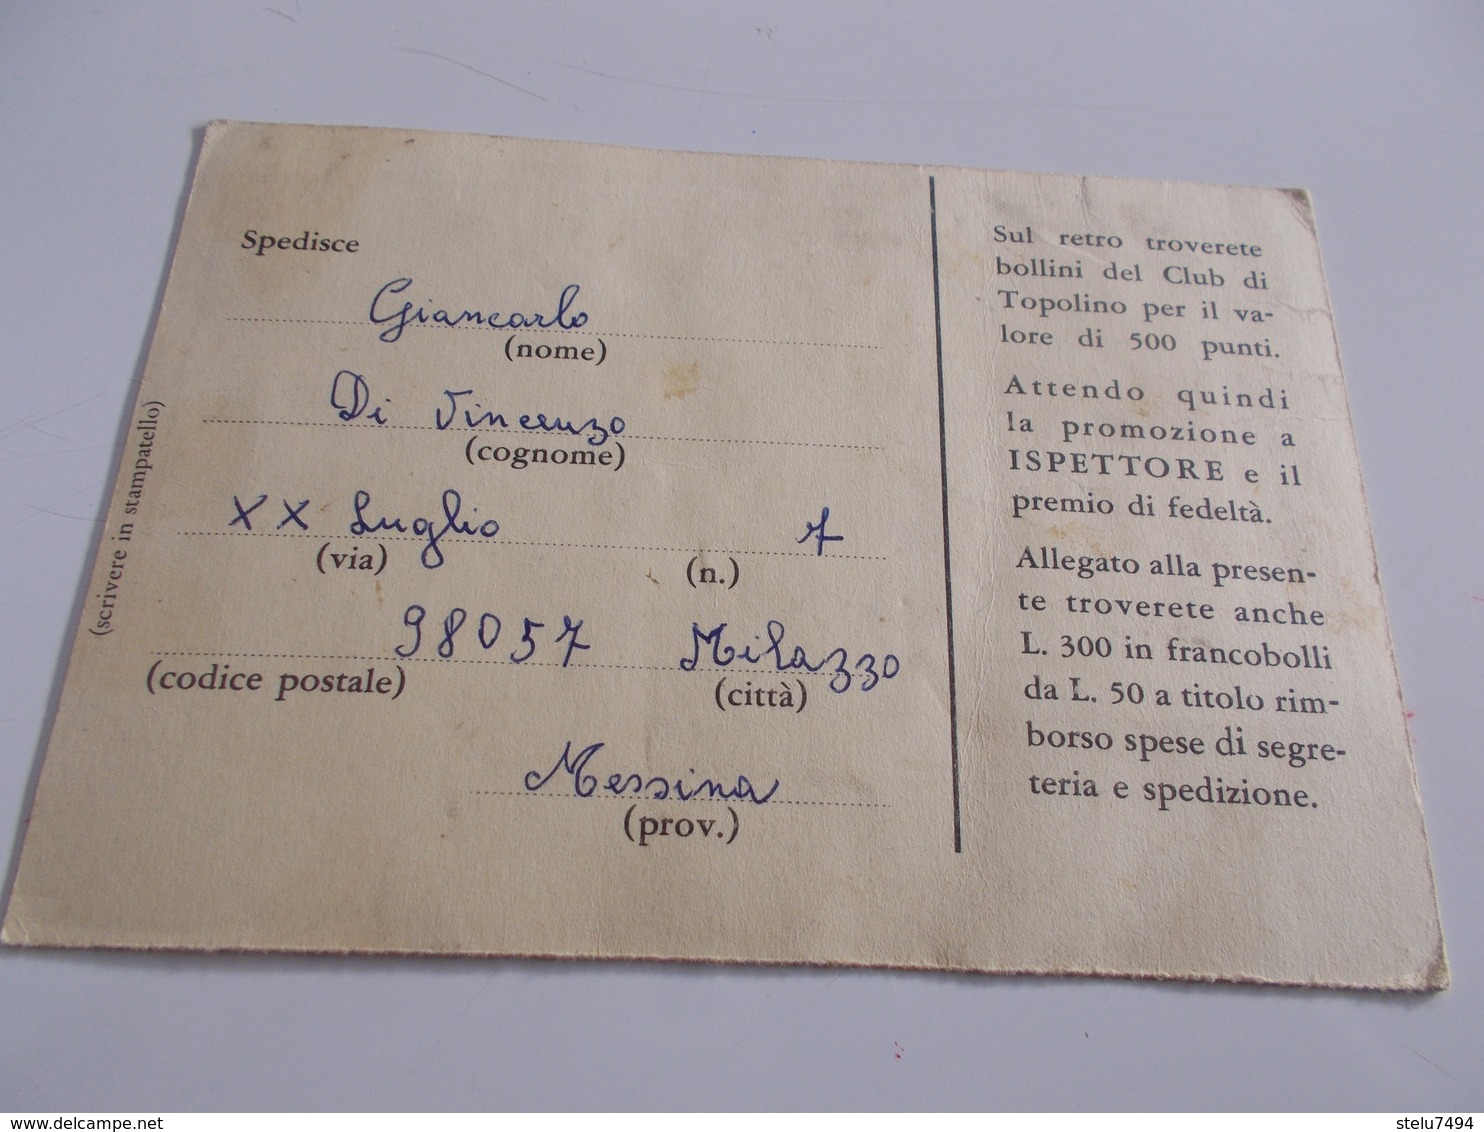 Spedisce
Giancarlo
(nome)
Di Vincenzo
(cognome)
XX Luglio 7
(via) (n.)
98057 Milazzo
(codice postale) (città)
Messina
(prov.)
(scrivere in stampatello)
Sul retro troverete
bollini del Club di
Topolino per il va-
lore di 500 punti.
Attendo quindi
la promozione a
ISPETTORE e il
premio di fedeltà.
Allegato alla presen-
te troverete anche
L. 300 in francobolli
da L. 50 a titolo rim-
borso spese di segre-
teria e spedizione.
stelu7494